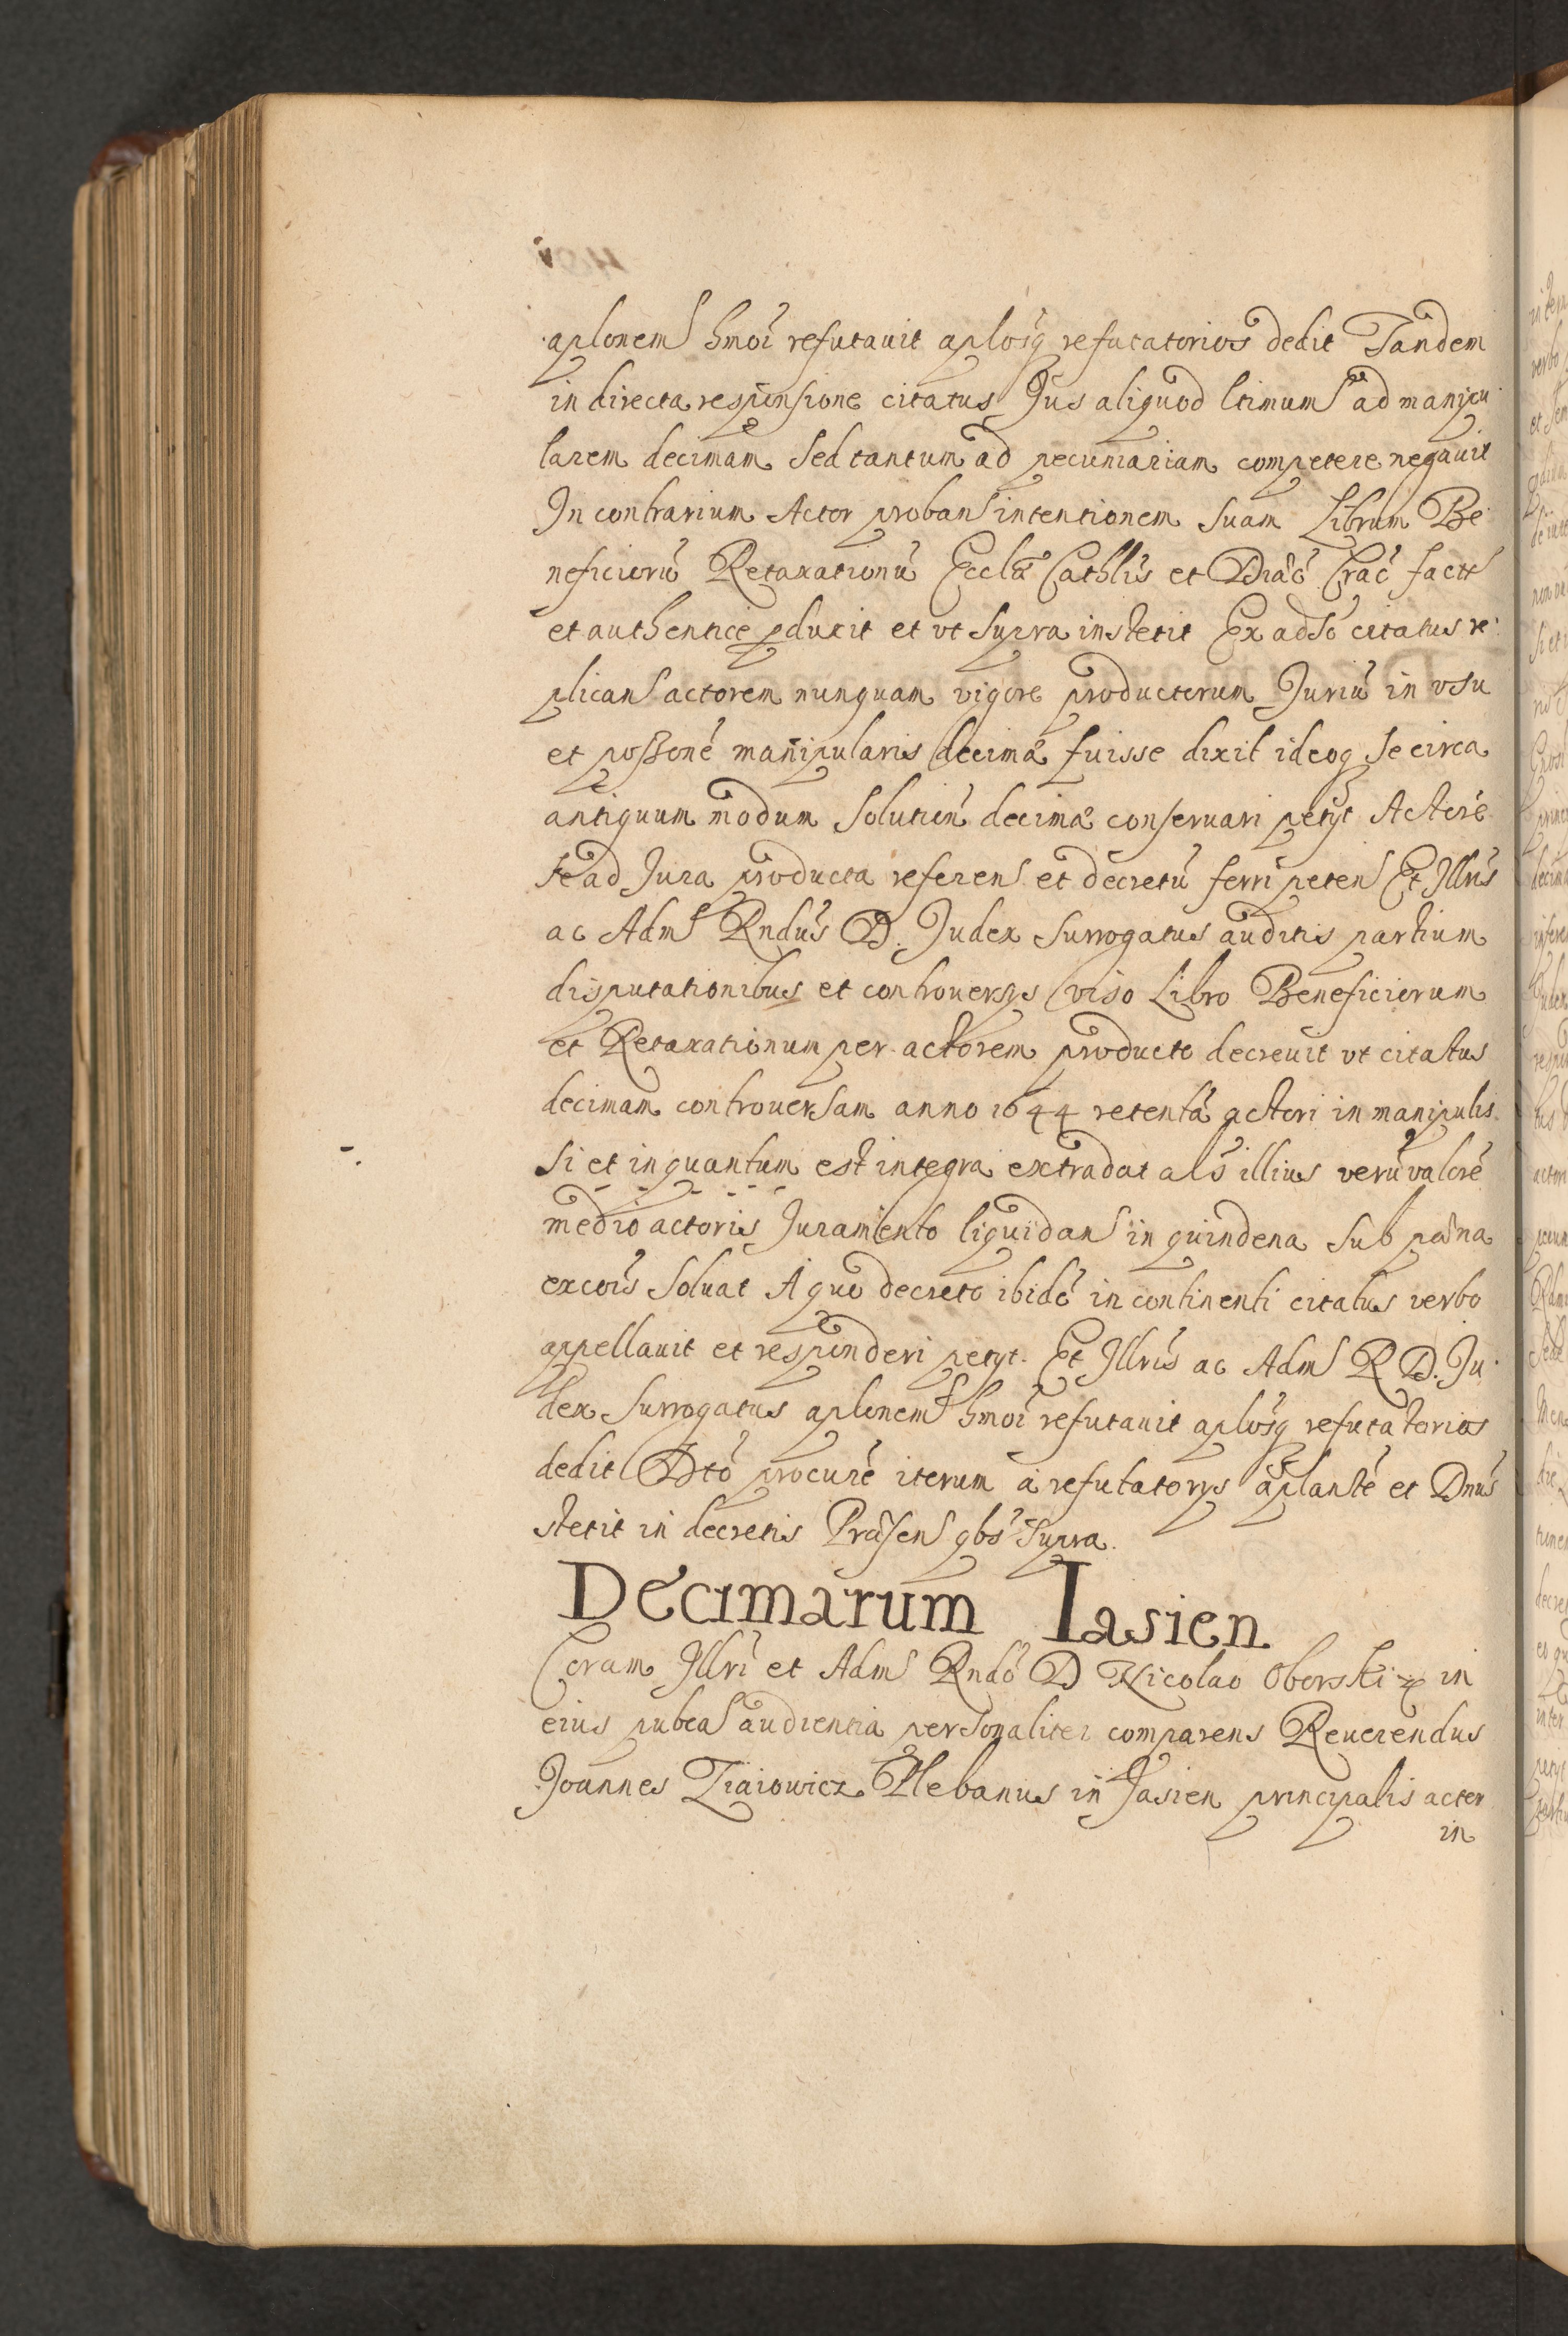 aplonem hmoi refutauit aplosq refutatorios dedit Tandem
in directa responsione citatus Jus aliquod ltimum ad manipu
larem decimam sed tantum ad pecuniariam competere negauit
In contrarium Actor probans intentionem suam Librum Be
neficiorū Retaxationū Ecclæ Cathlis et Diæc Crac facte
et authentice pduxit et vt supra institit Ex adso citatus re
plicans actorem nunquam vigore productorum Juriū in vsu
et possone manipularis decimæ fuisse dixit ideoq se circa
antiquum modum solution decimæ conseruari petyt Actore
se ad Jura producta referens et decretū ferri petens Et Illris
ac Adm Rndus D. Judex Surrogatus auditis partium
disputationibus et controuersys viso Libro Beneficiorum
et Retaxationum per actorem producto decreuit vt citatus
decimam controuersam anno 1644 retentā actori in manipulis
si et in quantum est integra extradat als illius verū valorē
medio actoris Juramento liquidans in quindena sub pæna
excois soluat A quo decreto ibidē in continenti citatus verbo
appellauit et responderi petyt. Et Illris ac Adm R D. Ju
dex Surrogatus aplonem hmoi refutauit aplosq refutatorios
dedit Dto procure iterum a refutatorys aplante et Dnus
stetit in decretis Præsen qbs supra.
Decimarum Iasien
Coram Illri et Adm Rndo D Nicolao Oborski in
eius pubca audientia personaliter comparens Reuerendus
Joannes Ziaiowicz Plebanus in Jasien principalis actor
in